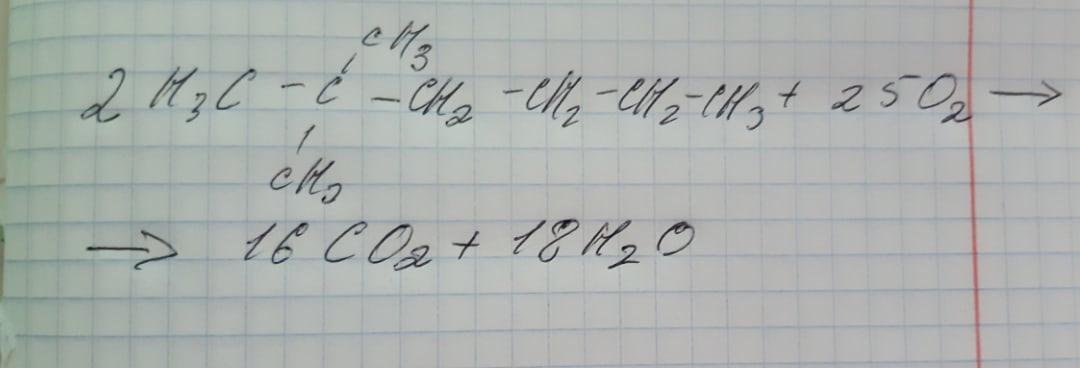 CH₃
2 H₃C - C - CH₂ - CH₂ - CH₂ - CH₃ + 25O₂ →
CH₃
→ 16 CO₂ + 18 H₂O